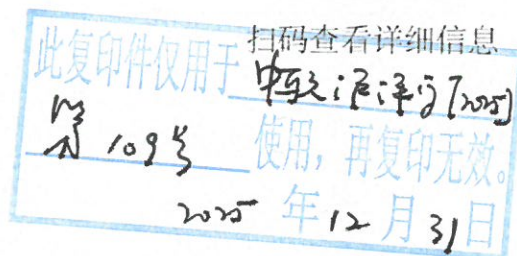 扫码查看详细信息
此复印件仅用于 [2025]
第 109号 使用，再复印无效。
2025 年 12 月 31 日